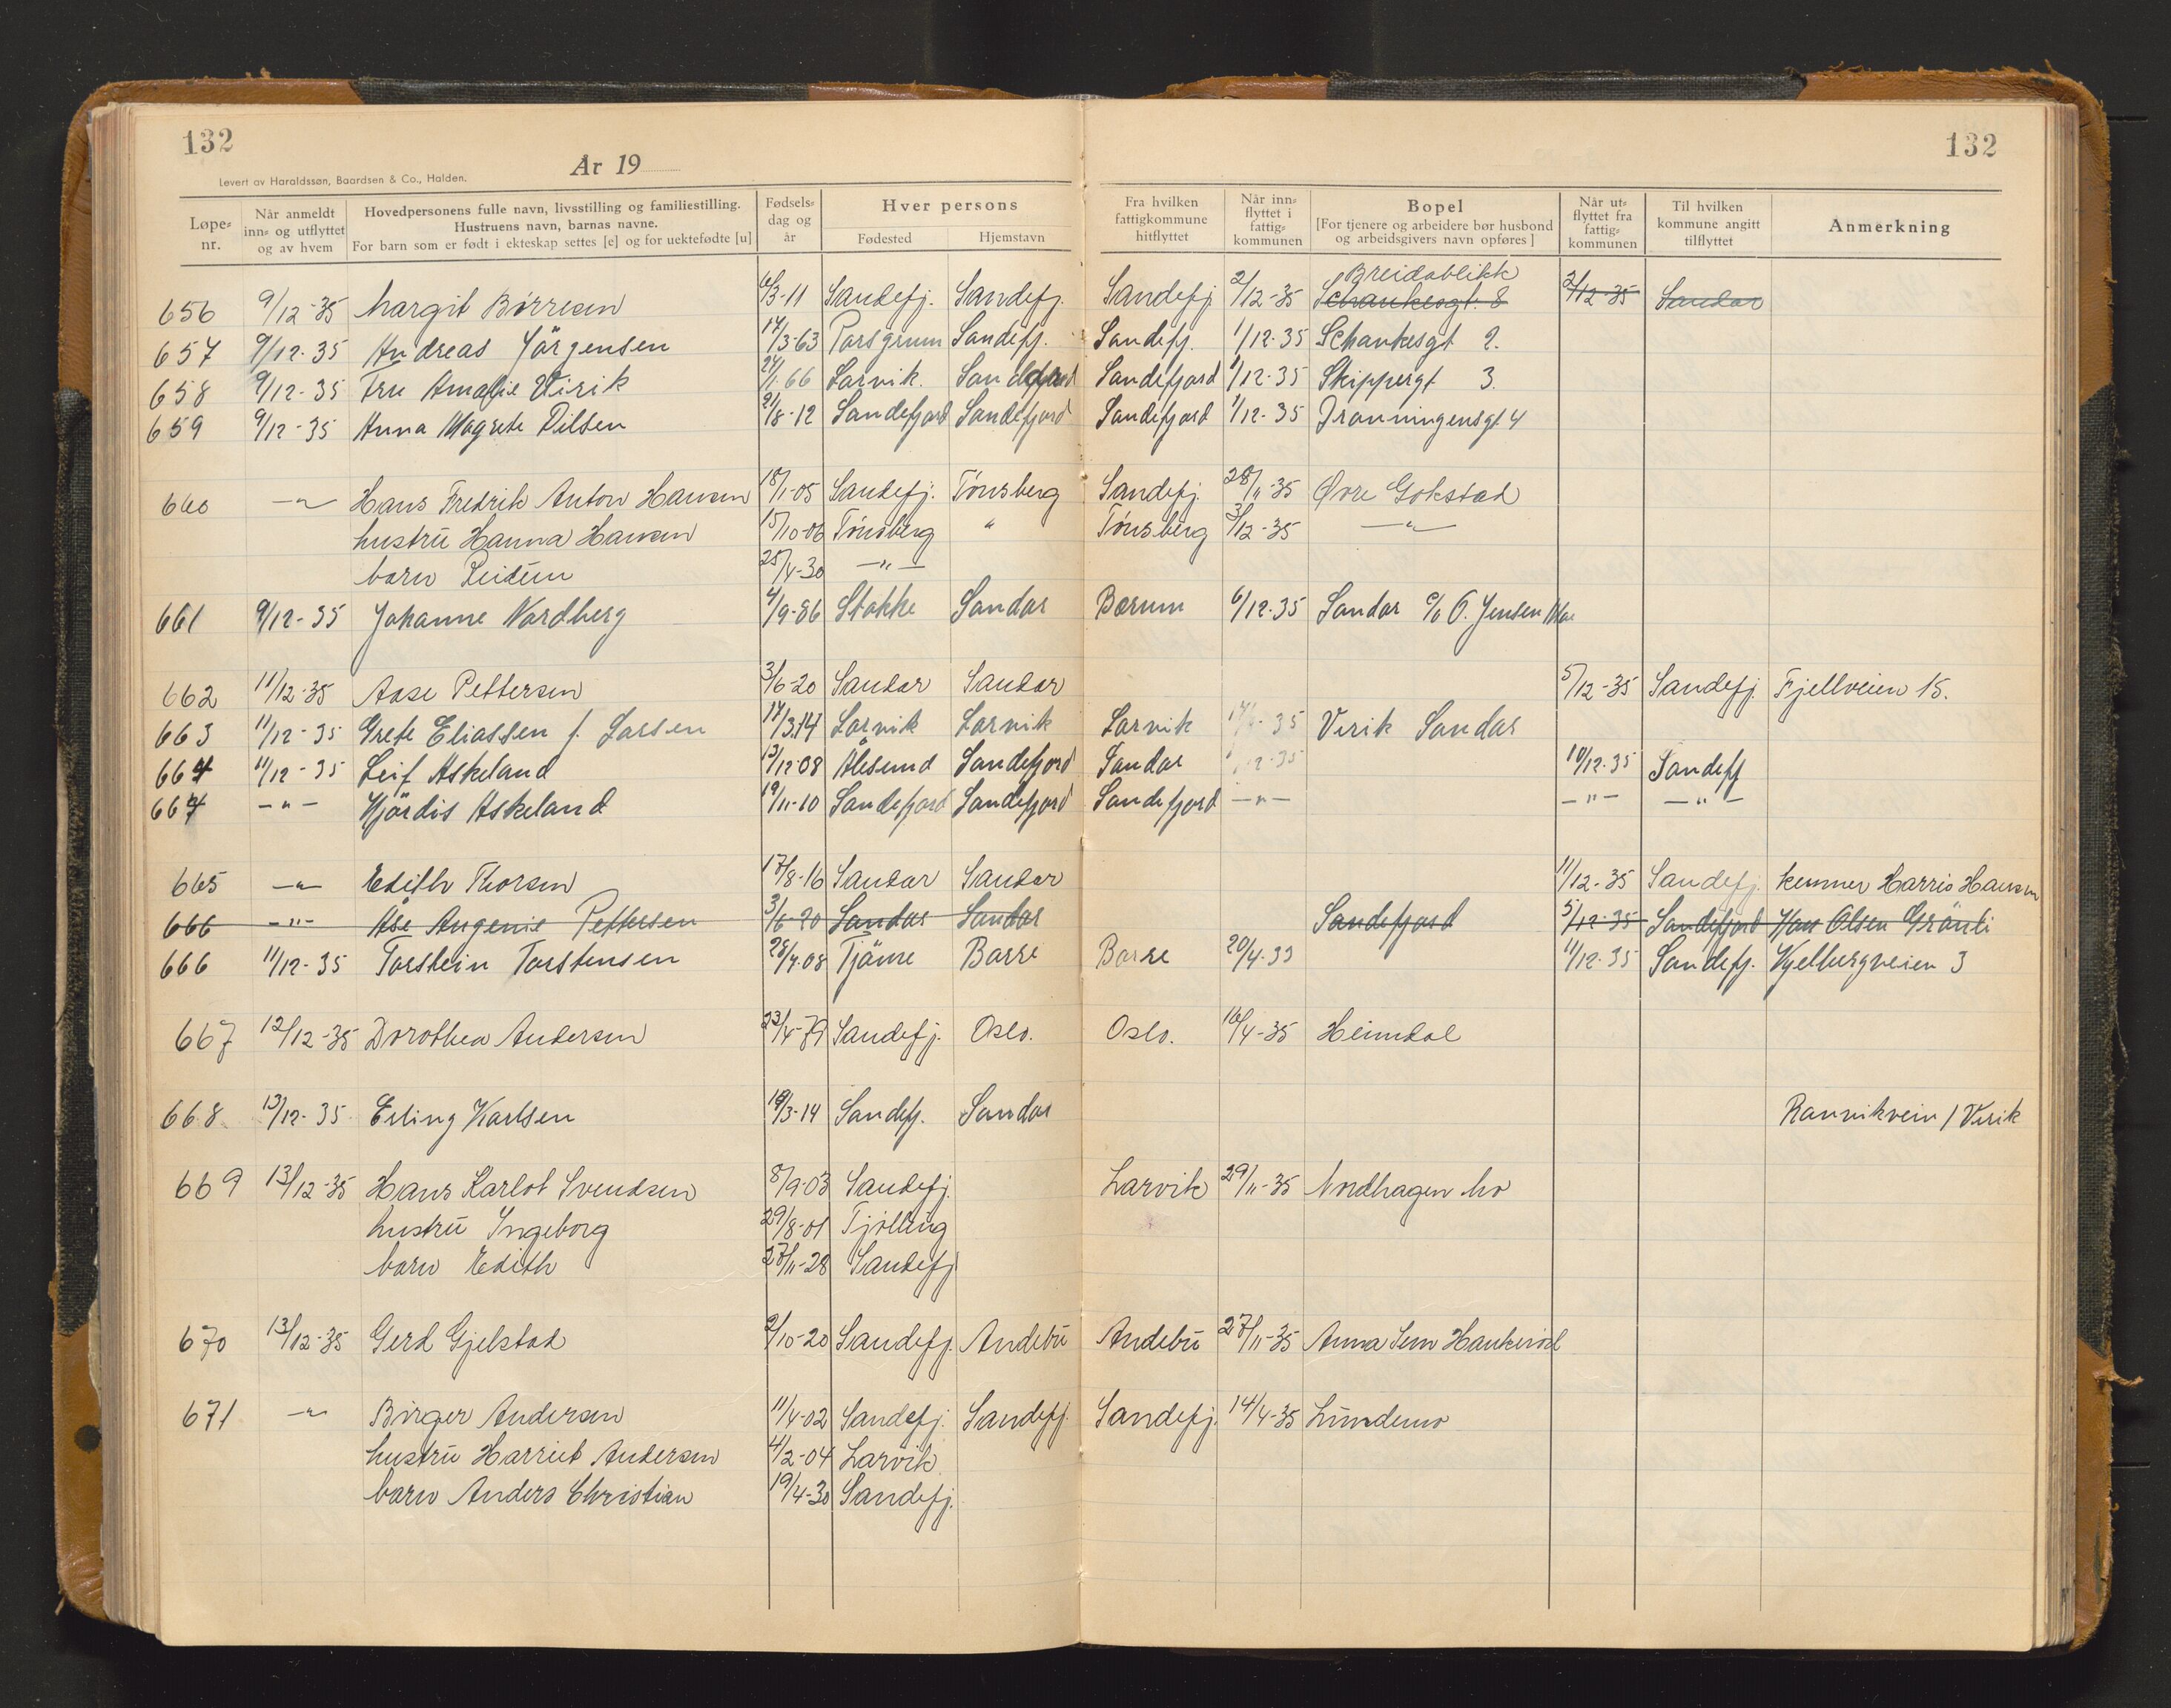 132
132
År 19
Levert av Haraldssøn, Baardsen & Co., Halden.
Løpe-nr. Når anmeldt inn- og utflyttet og av hvem Hovedpersonens fulle navn, livsstilling og familiestilling. Hustruens navn, barnas navne. For barn som er født i ekteskap settes [e] og for uektefødte [u] Fødsels-dag og år Hver persons Fødested Hjemstavn Fra hvilken fattigkommune hitflyttet Når inn-flyttet i fattig-kommunen Bopel [For tjenere og arbeidere bør husbond og arbeidsgivers navn opføres] Når ut-flyttet fra fattig-kommunen Til hvilken kommune angitt tilflyttet Anmerkning
Breidablikk
656 9/12-35 Margit Börresen 6/3-11 Sandefj. Sandefj. Sandefj 2/12-35 Schankesgt. 8 2/12-35 Sandar
657 9/12-35 Andreas Jörgensen 17/3-63 Porsgrunn Sandefj. Sandefj. 1/12-35 Schankesgt 2.
658 9/12-35 Fru Amalie Virik 24/1-66 Larvik. Sandefjord Sandefjord 1/12-35 Skippergt 3.
659 9/12-35 Anna Magrete Dilsen 2/8-12 Sandefjord Sandefjord Sandefjord 1/12-35 Dronningensgt 4
660 -"- Hans Fredrik Anton Hansen 18/1-05 Sandefj. Tönsberg Sandefj. 28/11-35 Øvre Gokstad
hustru Hanna Hansen 15/10-06 Tönsberg " Tönsberg 3/12-35 -"-
barn Reidun 25/4-30 -"-
661 9/12-35 Johanne Nordberg 4/9-86 Stokke Sandar Bærum 6/12-35 Sandar c/o O. Jensen
662 11/12-35 Aase Pettersen 3/6-20 Sandar Sandar 5/12-35 Sandefj. Fjellveien 15.
663 11/12-35 Grete Eliassen f. Larsen 17/3-14 Larvik Larvik Larvik 35 Virik Sandar
664 11/12-35 Leif Askeland 13/12-08 Ålesund Sandefjord Sandar 12-35 10/12-35 Sandefj
664 -"- Hjördis Askeland 19/11-10 Sandefjord Sandefjord Sandefjord -"- -"- -"-
665 -"- Edith Thorsen 17/8-16 Sandar Sandar 11/12-35 Sandefj. kenner Harris Hansen
666 -"- Åse Augenie Pettersen 3/6-20 Sandar Sandar Sandefjord 5/12-35 Sandefjord Olsen Grönli
666 11/12-35 Torstein Torstensen 28/7-08 Tjöme Borre Borre 20/4-33 11/12-35 Sandefj. Kjelbergveien 3
667 12/12-35 Dorothea Andersen 23/4-79 Sandefj. Oslo. Oslo. 16/4-35 Heimdal
668 13/12-35 Erling Karlsen 18/3-14 Sandefj. Sandar Ranvikvein / Virik
669 13/12-35 Hans Karlot Svendsen 8/9-03 Sandefj. Larvik 29/11-35 Nordhagen mo
hustru Ingeborg 29/8-01 Tjölling
barn Edith 27/11-28 Sandefj
670 13/12-35 Gerd Gjelstad 2/10-20 Sandefj. Andebu Andebu 27/11-35 Anna Sem Haukeröd
671 -"- Birger Andersen 11/4-02 Sandefj. Sandefj. Sandefj. 14/4-35 Lundemo
hustru Harriet Andersen 4/2-04 Larvik
barn Anders Christian 19/4-30 Sandefj.